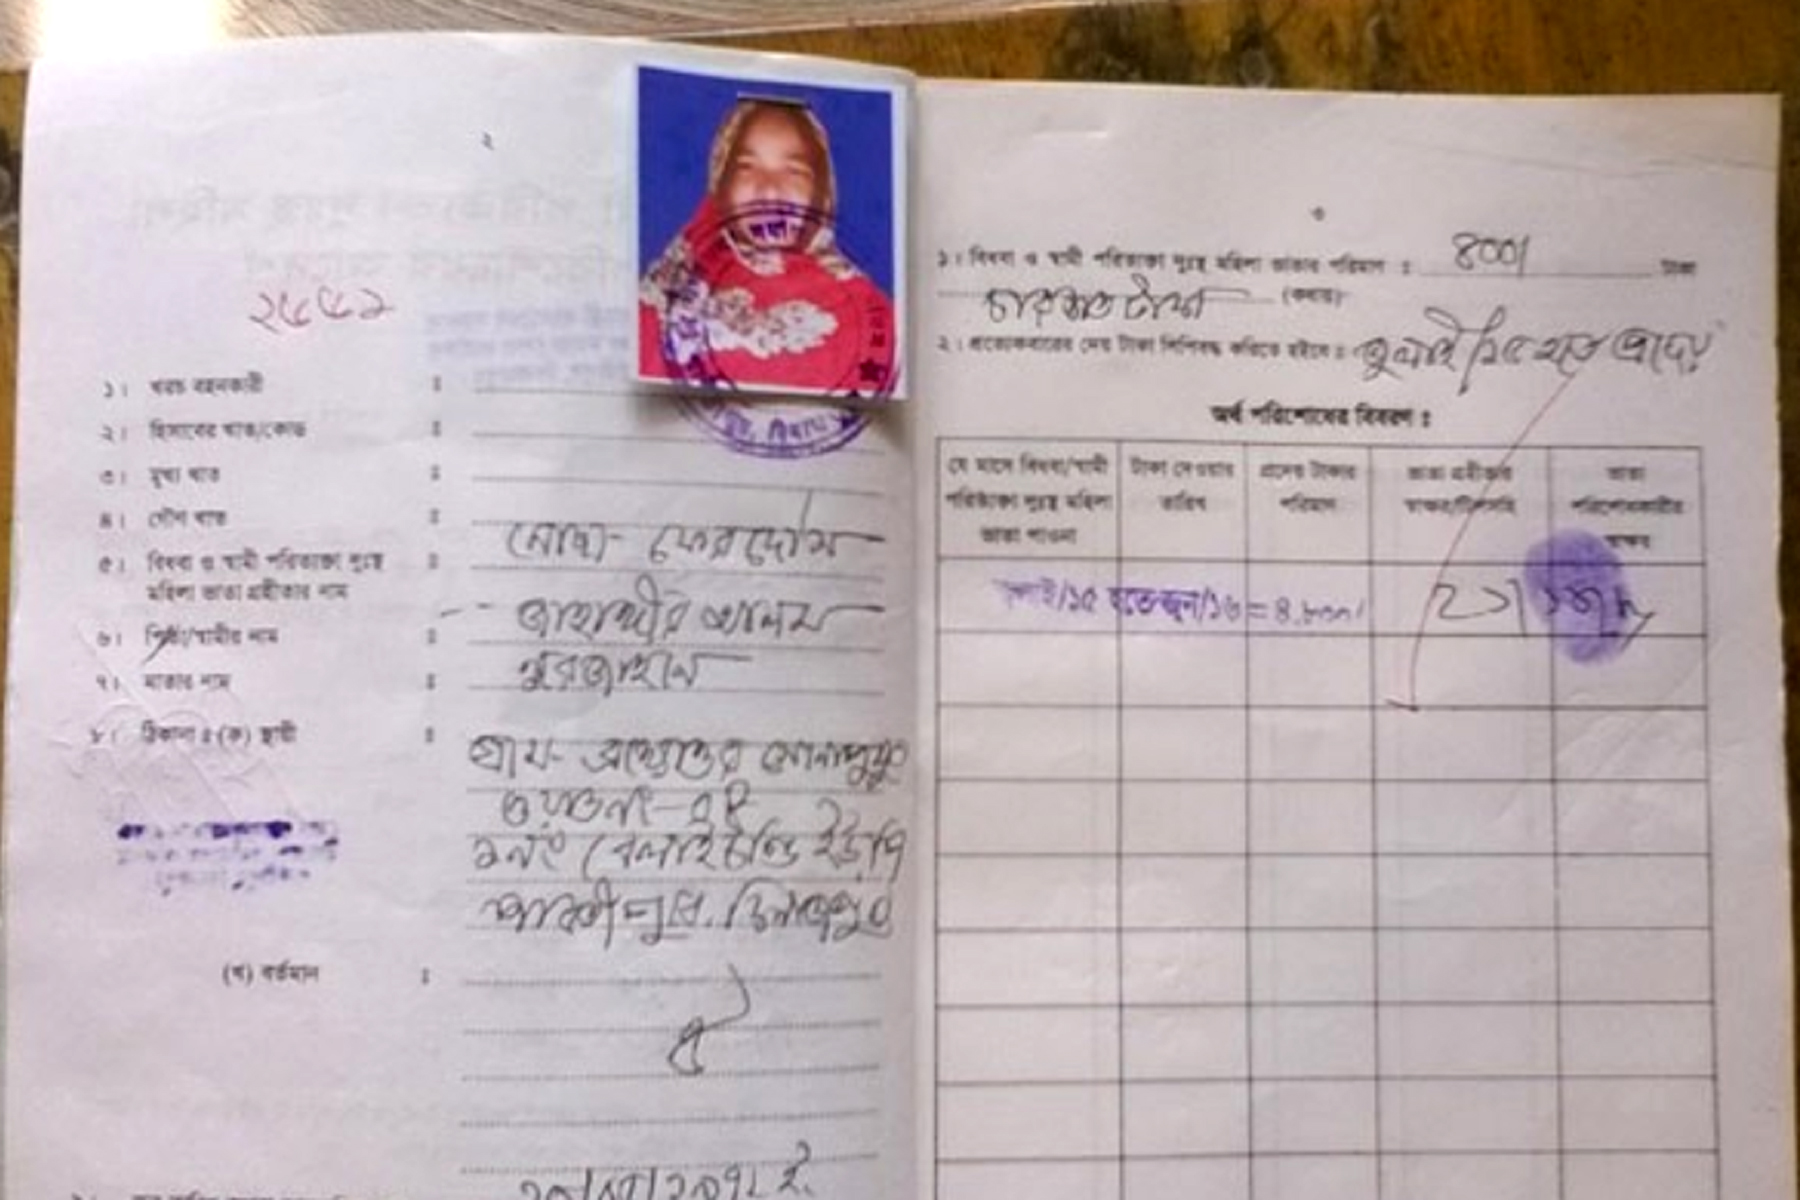 ২
২৫৫১
১। খরচ বহনকারী :
২। হিসাবের খাত/কোড :
৩। মুখ্য খাত :
৪। গৌণ খাত :
৫। বিধবা ও স্বামী পরিত্যক্তা দুঃস্থ : মোছাঃ ফেরদৌস
মহিলা ভাতা গ্রহীতার নাম
৬। পিতা/স্বামীর নাম : জাহাঙ্গীর আলম
৭। মাতার নাম : নুরজাহান
৮। ঠিকানা ঃ (ক) স্থায়ী : গ্রাম- সোনাপুকুর
ওয়ার্ড নং-
১নং বেলাইচন্ডি ইউপি
পার্বতীপুর, দিনাজপুর
(খ) বর্তমান : ঐ
৩
১। বিধবা ও স্বামী পরিত্যক্তা দুঃস্থ মহিলা ভাতার পরিমাণ : ৪০০/ টাকা
চারশত টাকা (কথায়)
২। প্রত্যেকবারের দেয় টাকা লিপিবদ্ধ করিতে হইবে : জুলাই/১৫ হতে প্রদেয়
অর্থ পরিশোধের বিবরণ ঃ
যে মাসে বিধবা/স্বামী টাকা দেওয়ার প্রদেয় টাকার ভাতা গ্রহীতার ভাতা
পরিত্যক্তা দুঃস্থ মহিলা তারিখ পরিমাণ স্বাক্ষর/টিপসহি পরিশোধকারীর
ভাতা পাওনা স্বাক্ষর
জুলাই/১৫ হতে জুন/১৬ = ৪,৮০০/